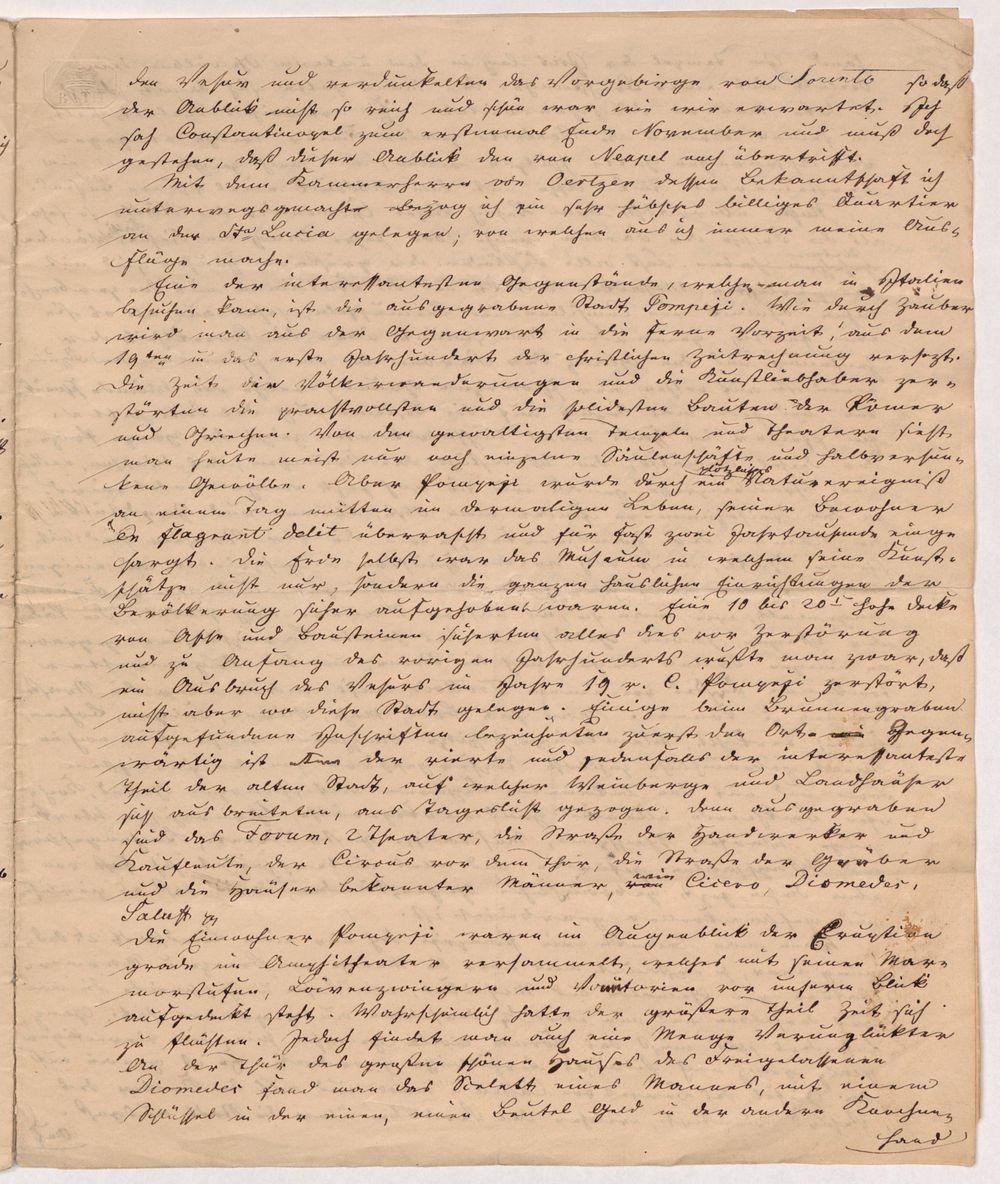 den Vesuv und verdunkelten das Vorgebirge von Sorento so daß
der Anblick nicht so reich und schön war wie wir erwartet. Ich
sah Constantinopel zum erstenmal Ende November und muß doch
gestehen, daß dieser Anblick den von Neapel noch übertrifft.
Mit dem Kammerherrn von Oertzen dessen Bekanntschaft ich
unterwegs gemacht bezog ich ein sehr hübsches billiges Quartier
an der Sta Lucia gelegen, von welchen aus ich immer meine Aus-
flüge mache.
Eine der interessantesten Gegenstände, welche man in Italien
besuchen kann, ist die ausgegrabene Stadt Pompeji. Wie durch Zauber
wird man aus der Gegenwart in die ferne Vorzeit, aus dem
19ten in das erste Jahrhundert der christlichen Zeitrechnung versezt.
Die Zeit der Völkerwanderungen und die Kunstliebhaber zer-
störten die prachtvollsten und die solidesten Bauten der Römer
und Griechen. Von den gewaltigsten Tempeln und Theatern sieht
man heute meist nur noch einzelne Säulenschäfte und halbversun-
kene Gewölbe. Aber Pompeji wurde durch ein plözliches Naturereigniß
an einem Tag mitten im dermaligen Leben, seiner Bewohner
en flagranti delit überrascht und für fast zwei Jahrtausende einge
sargt. Die Erde selbst war das Museum in welchem seine Kunst-
schätze nicht nur, sondern die ganzen häuslichen Einrichtungen der
Bevölkerung sicher aufgehoben waren. Eine 10 bis 20' hohe Decke
von Asche und Bausteinen sicherten alles dies vor Zerstörung
und zu Anfang des vorigen Jahrhunderts wußte man zwar, daß
ein Ausbruch des Vesuvs im Jahre 19 v. C. Pompeji zerstört,
nicht aber wo diese Stadt gelegen. Einige beim Brunnengraben
aufgefundene Inschriften bezeichneten zuerst den Ort. Gegen-
wärtig ist der vierte und jedenfalls der interessanteste
Theil der alten Stadt, auf welcher Weinberge und Landhäuser
sich ausbreiteten, ans Tageslicht gezogen. Denn ausgegraben
sind das Forum, 2 Theater, die Straße der Handwerker und
Kaufleute, der Circus vor dem Thor, die Straße der Gräber
und die Häuser bekannter Männer, wie Cicero, Diomedes,
Salust
Die Einwohner Pompeji waren im Augenblick der Eruption
grade im Amphitheater versammelt, welches mit seinen Mar-
morstufen, Löwenzwingern und Vomitorien vor unserm Blick
aufgedeckt steht. Wahrscheinlich hatte der größere Theil Zeit sich
zu flüchten. Jedoch findet man auch eine Menge Verunglückter
An der Thür des großen schönen Hauses des Freigelassenen
Diomedes fand man das Scelett eines Mannes, mit einem
Schlüssel in der einen, einen Beutel Geld in der andern Knochen-
hand